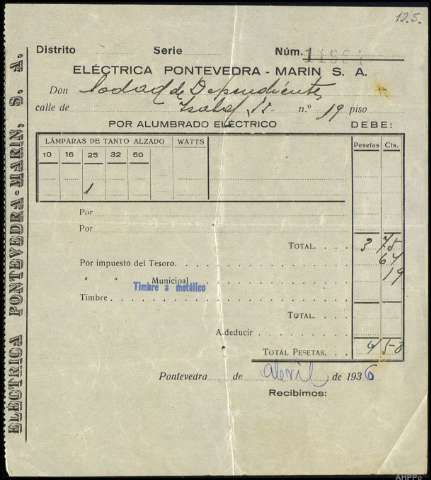 125.
Distrito Serie Núm. 1
ELÉCTRICA PONTEVEDRA - MARIN S. A.
Don Sodad de Dependientes
calle de Isabel II n.º 19 piso
POR ALUMBRADO ELÉCTRICO DEBE:
LÁMPARAS DE TANTO ALZADO WATTS Pesetas Cts.
10 16 25 32 50
1
Por
Por
TOTAL. 3 75
Por impuesto del Tesoro. 64
" " Municipal 19
Timbre a metálico
Timbre.
TOTAL.
A deducir
TOTAL PESETAS. 4 58
Pontevedra de abril de 1936
Recibimos:
ELECTRICA PONTEVEDRA-MARIN, S. A.
AHPPo